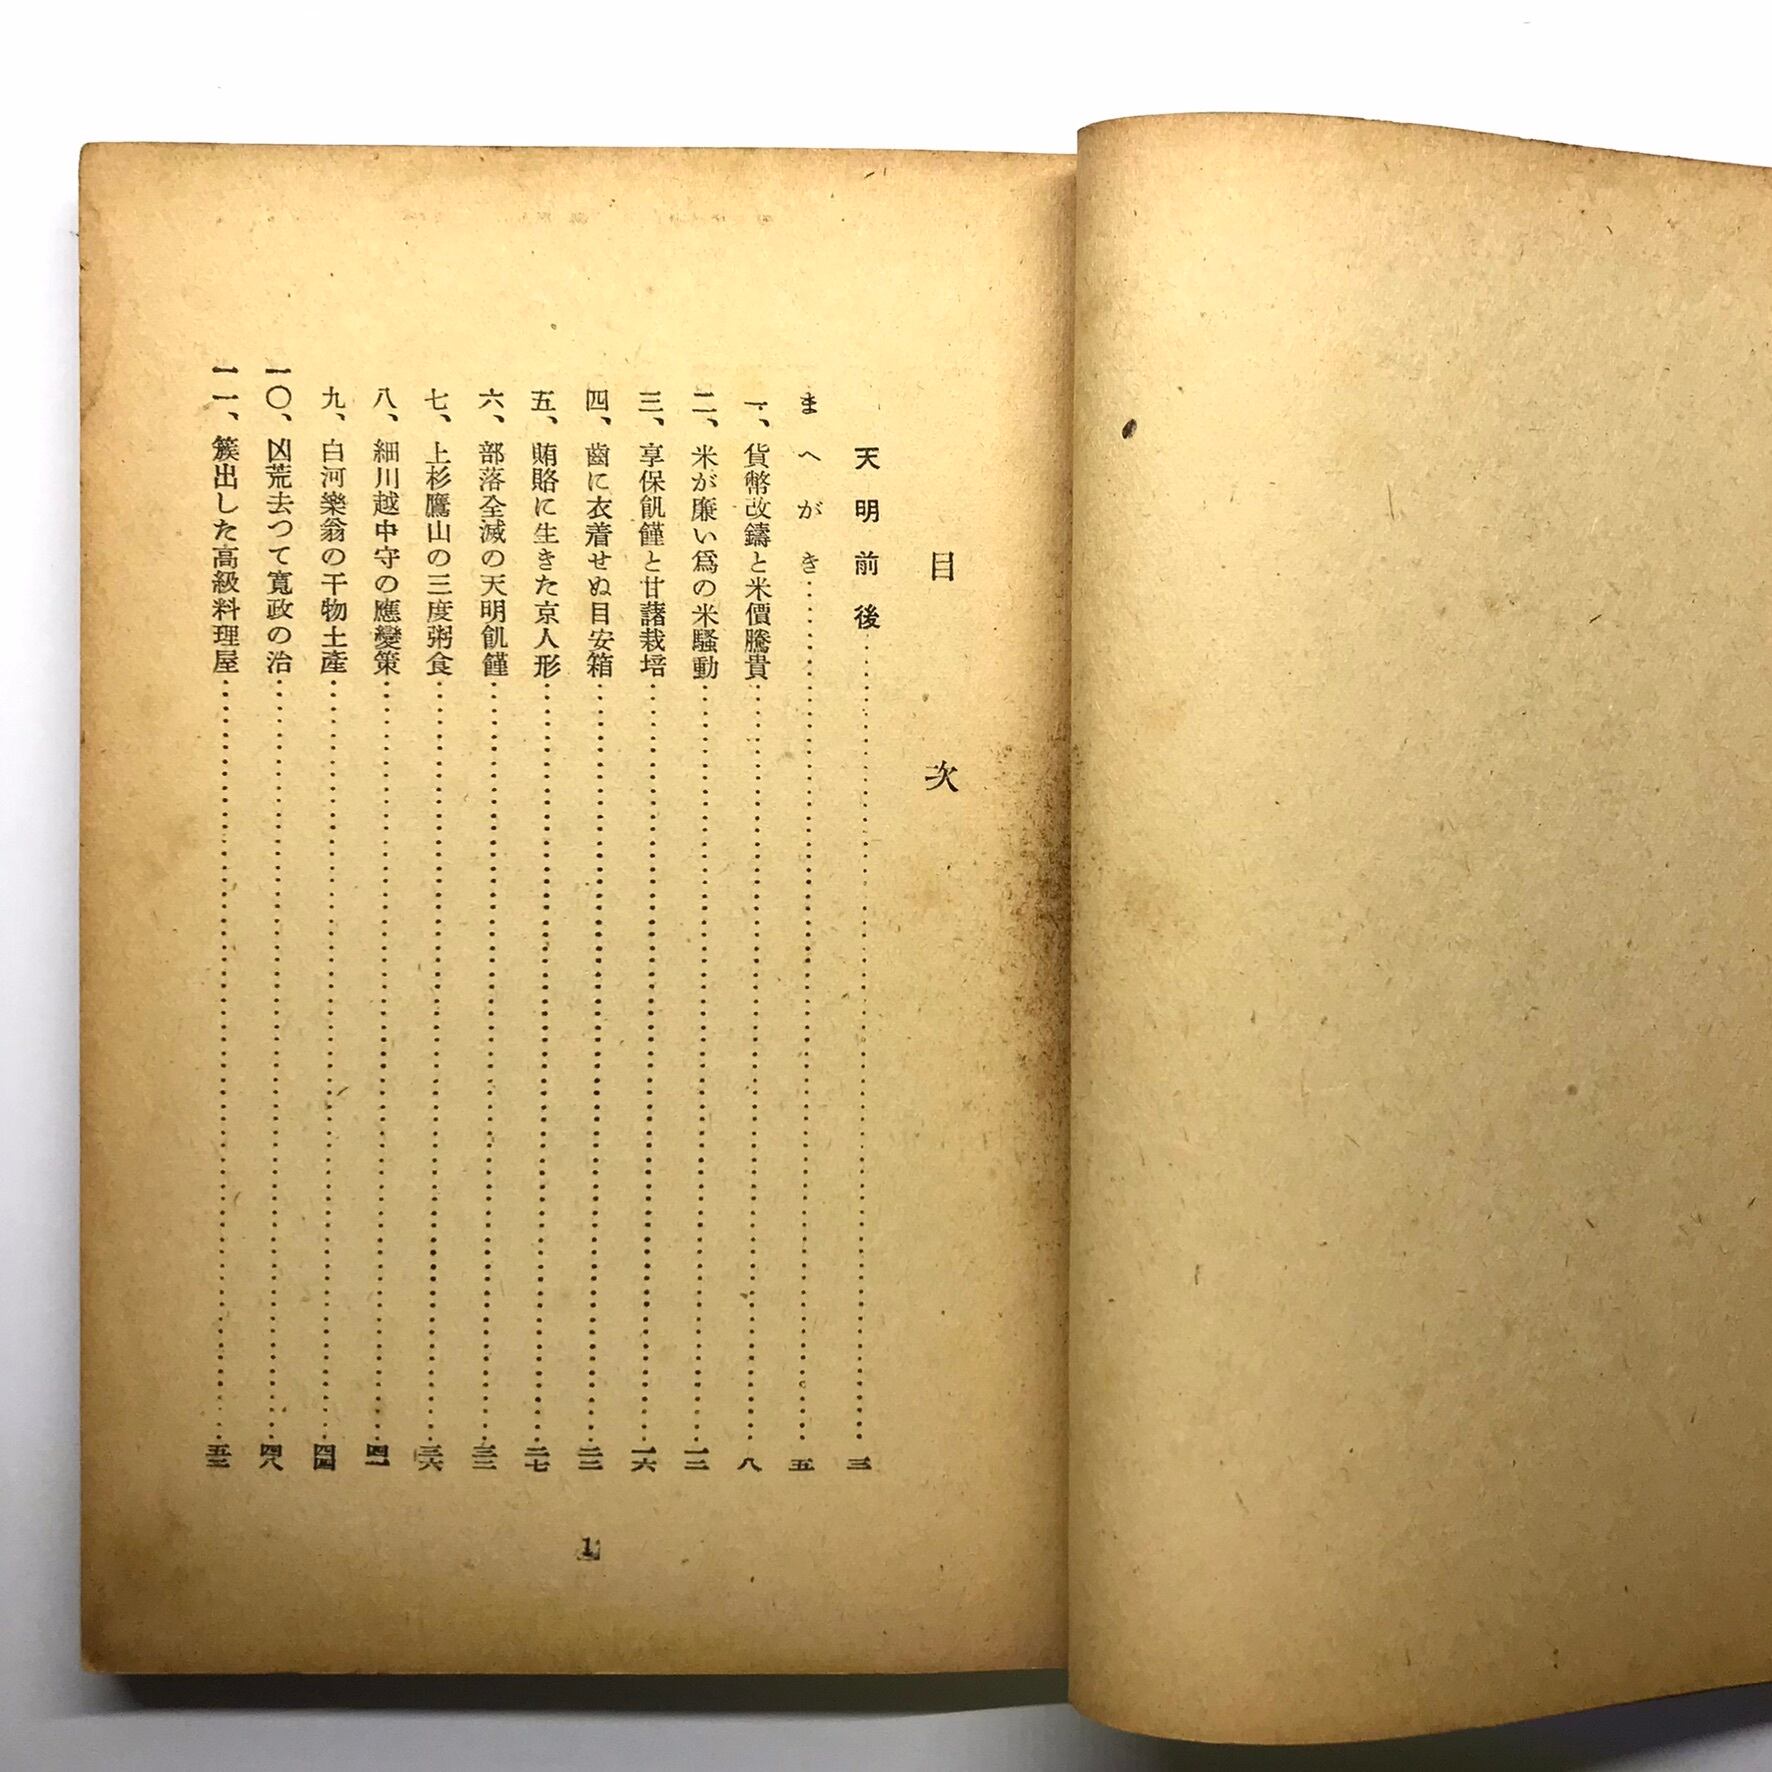 目次
天明前後……三
まへがき……五
一、貨幣改鑄と米價騰貴……八
二、米が廉い爲の米騷動……一二
三、享保飢饉と甘藷栽培……一六
四、齒に衣着せぬ目安箱……二二
五、賄賂に生きた京人形……二七
六、部落全滅の天明飢饉……三二
七、上杉鷹山の三度粥食……三六
八、細川越中守の應變策……四一
九、白河樂翁の干物土產……四四
一〇、凶荒去つて寬政の治……四八
一一、簇出した高級料理屋……五三
1